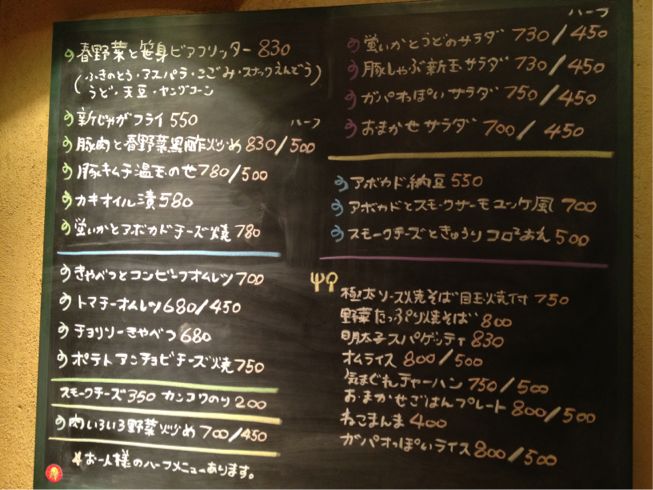 春野菜と笹身ビアフリッター 830
(ふきのとう・アスパラ・こごみ・スナックえんどう
うど・天豆・ヤングコーン)
新じゃがフライ 550
ハーフ
豚肉と春野菜黒酢炒め 830/500
豚キムチ温玉のせ 780/500
カキオイル漬 580
蛍いかとアボカドチーズ焼 780
きゃべつとコンビーフオムレツ 700
トマチーオムレツ 680/450
チョリソーきゃべつ 680
ポテトアンチョビチーズ焼 750
スモークチーズ 350 カンコクのり 200
肉いろいろ野菜炒め 700/450
お一人様のハーフメニューあります。
ハーフ
蛍いかとうどのサラダ 730/450
豚しゃぶ新玉サラダ 730/450
ガパオっぽいサラダ 750/450
おまかせサラダ 700/450
アボカド納豆 550
アボカドとスモークサーモンユッケ風 700
スモークチーズときゅうりコロコロあえ 500
極太ソース焼そば目玉焼付 750
野菜たっぷり焼そば 800
明太子スパゲッティ 830
オムライス 800/500
気まぐれチャーハン 750/500
おまかせごはんプレート 800/500
ねこまんま 400
ガパオっぽいライス 800/500